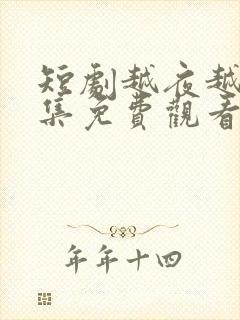 短劇越夜越
集免費觀看
年年十四